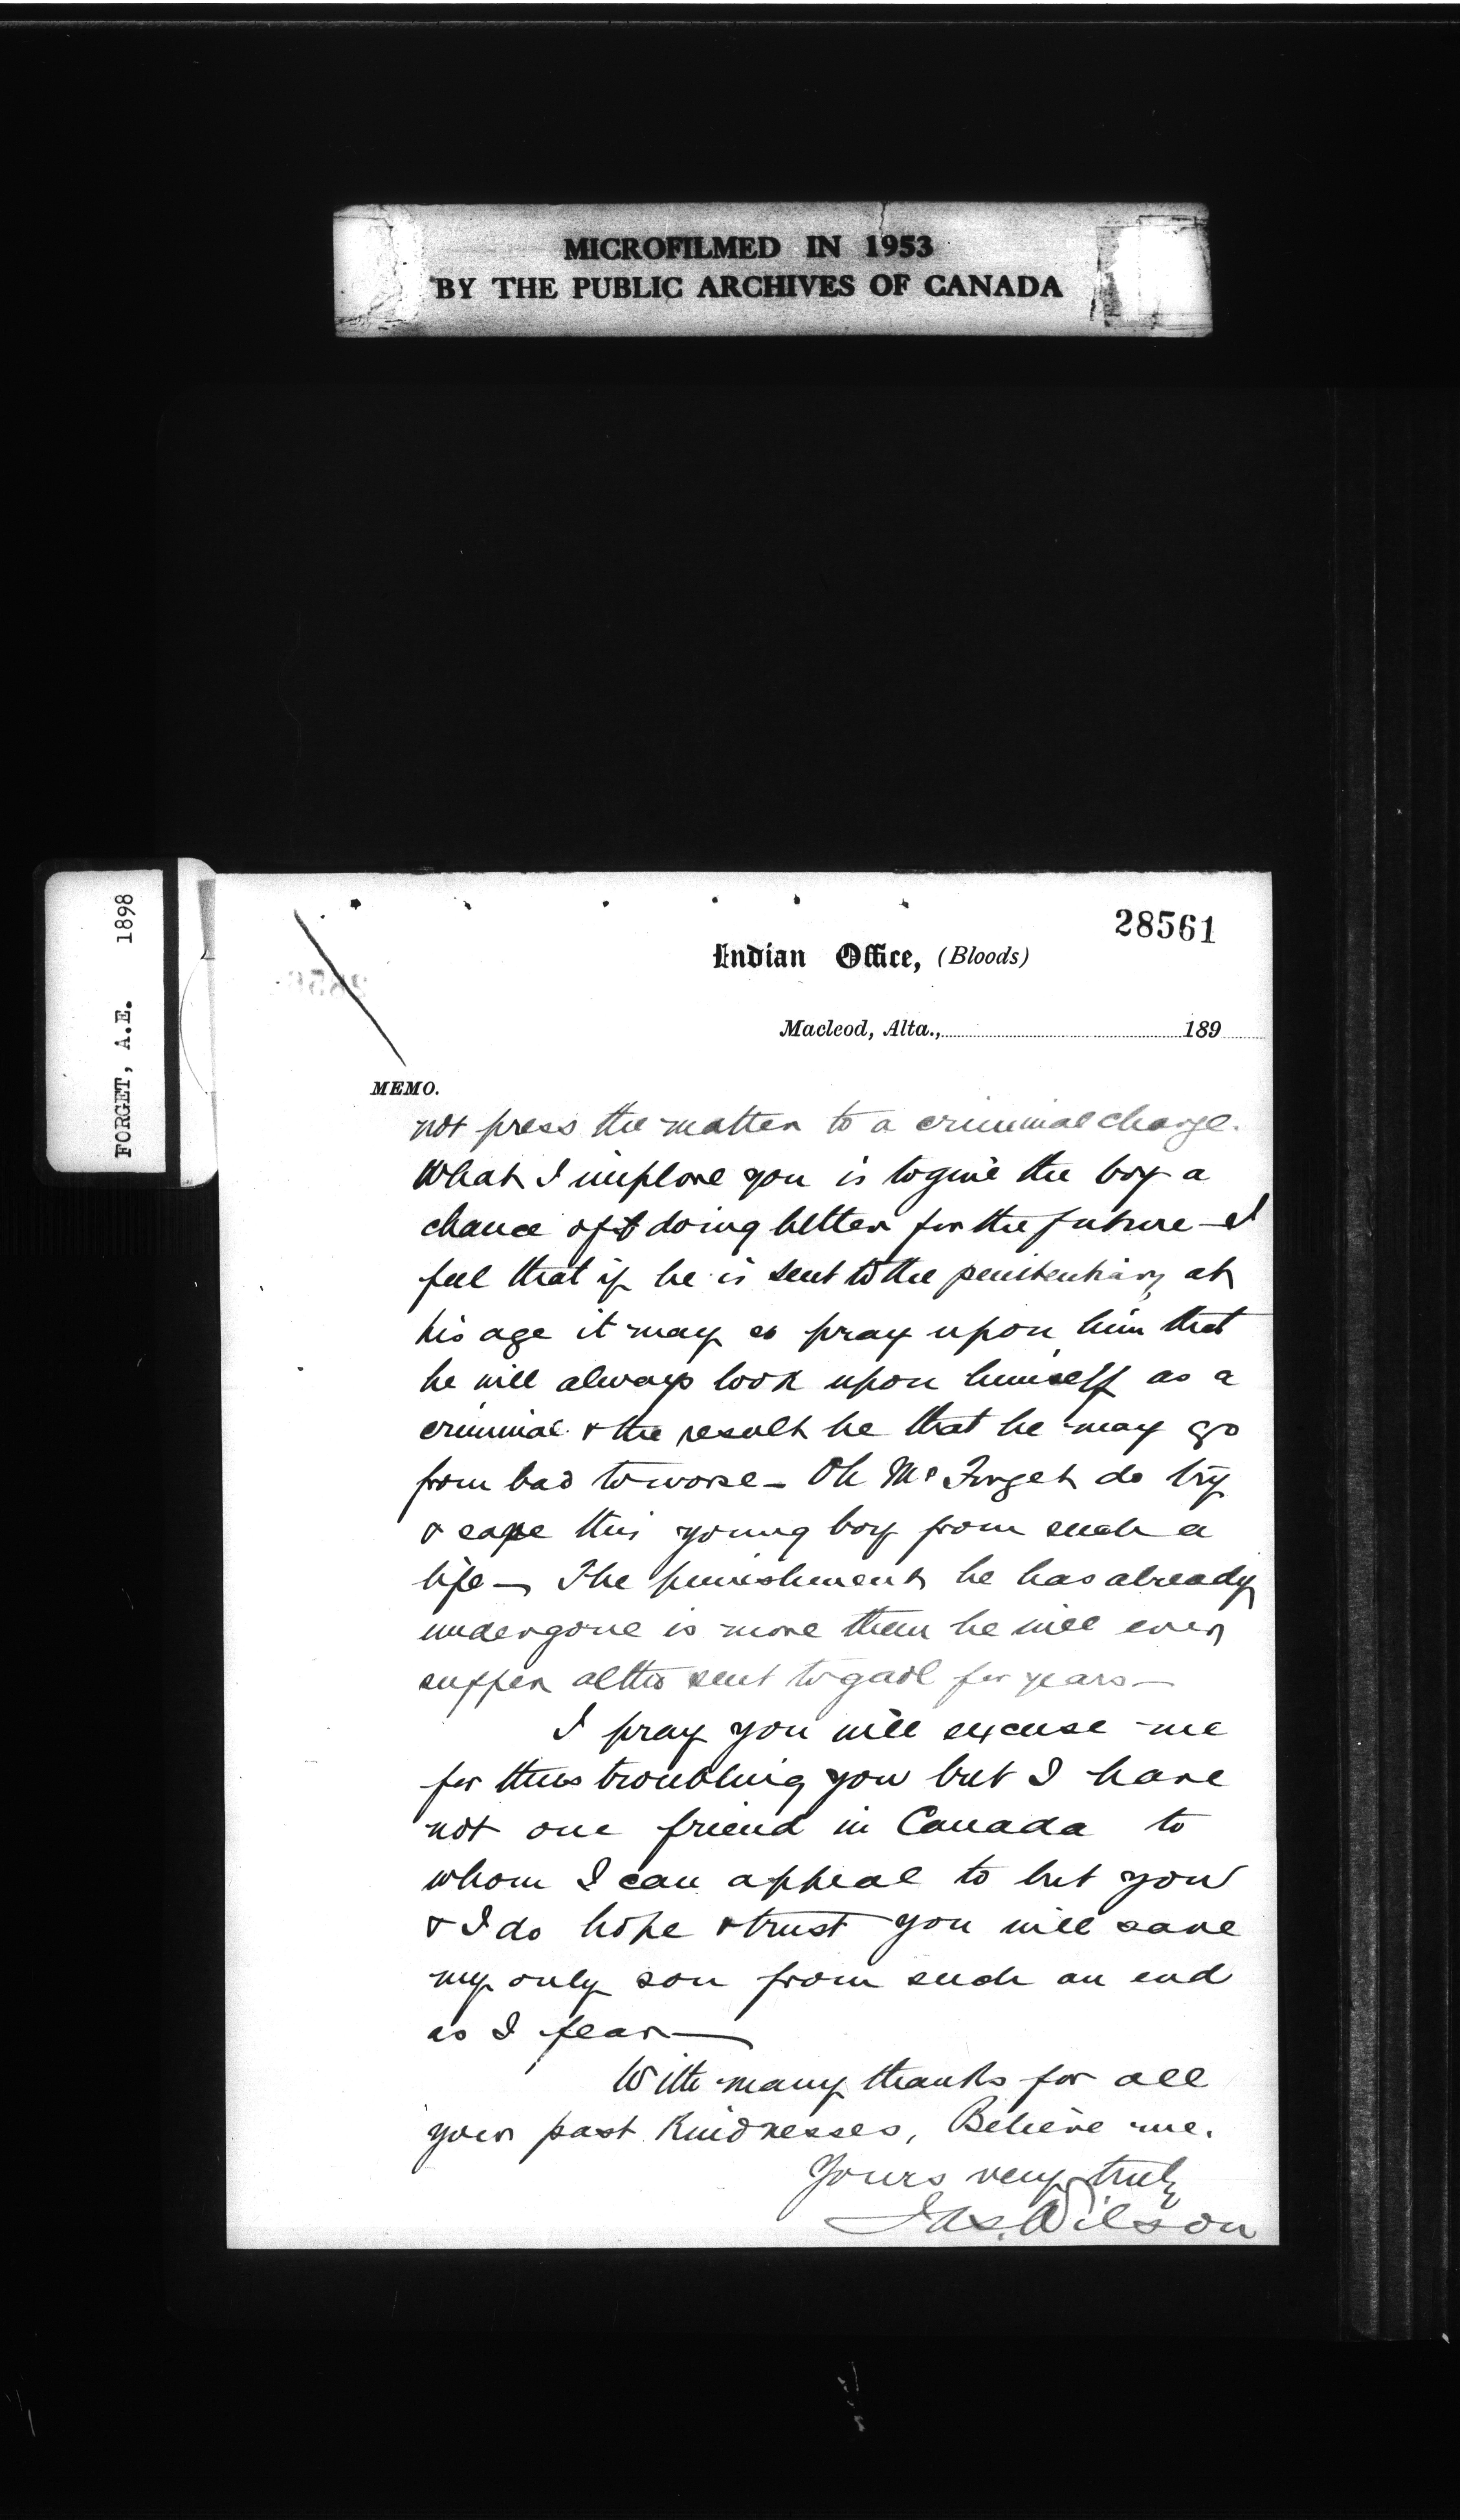 MICROFILMED IN 1953
BY THE PUBLIC ARCHIVES OF CANADA
FORGET, A.E. 1898
28561
Indian Office, (Bloods)
Macleod, Alta., 189
MEMO.
not press the matter to a criminal charge.
What I implore you is to give the boy a
chance of doing better for the future – I
feel that if he is sent to the penitentiary at
his age it may so pray upon him that
he will always look upon himself as a
criminal & the result be that he may go
from bad to worse – Oh Mr Forget do try
& save this young boy from such a
life – The punishment he has already
undergone is more than he will ever
suffer altho sent to gaol for years –
I pray you will excuse me
for thus troubling you but I have
not one friend in Canada to
whom I can appeal to but you
& I do hope & trust you will save
my only son from such an end
as I fear –
With many thanks for all
your past kindnesses, Believe me.
Yours very truly
Jas. Wilson